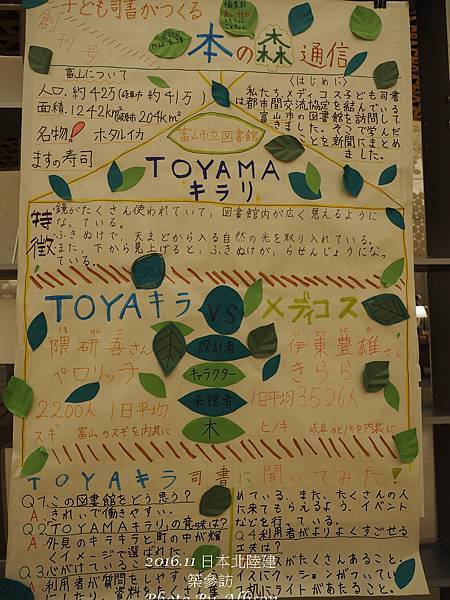 子ども司書がつくる
創刊号
本の森通信
富山について
人口.約42万(岐阜市 約41万)
面積.1242km²(岐阜市 204km²)
名物! ホタルイカ
ますの寿司
富山市立図書館
〈はじめに〉
私たち、メディコス子ども司書
は都市間交流協定を結んでいる
富山市の図書館を訪問して
きました。そこで学んだ
ことを新聞にまとめ
ました。
TOYAMA
キラリ
特徴
・鏡がたくさん使われていて、図書館内が広く見えるように
なっている。
・ふきぬけで、天まどから入る自然の光を取り入れている。
また、下から見上げると、ふきぬけが、らせんじょうになっ
ている。
TOYAキラ VS メディコス
隈研吾さん 設計者 伊東豊雄さん
ペロリッチ キャラクター きらら
2200人 1日平均 来館者 1日平均3526人
スギ 富山のスギを内装に 木 ヒノキ 岐阜のヒノキを内装に
TOYAキラ司書に聞いてみた!
Q1.この図書館をどう思う?
A.きれいで働きやすい。
Q2「TOYAMAキラリ」の意味は?
A.外見のキラキラと町の中が輝
くイメージで選ばれた。
Q3.心がけていること
A.利用者が質問をしやす
めている、また、たくさんの人
に来てもらえるよう、イベント
などを行っている。
Q4利用者がよりよくすごせる
工夫は?
がたくさんあること。
イスにクッションがついてい
机にライトがあること。
2016.11 日本北陸建
築參訪
Photo By Allison